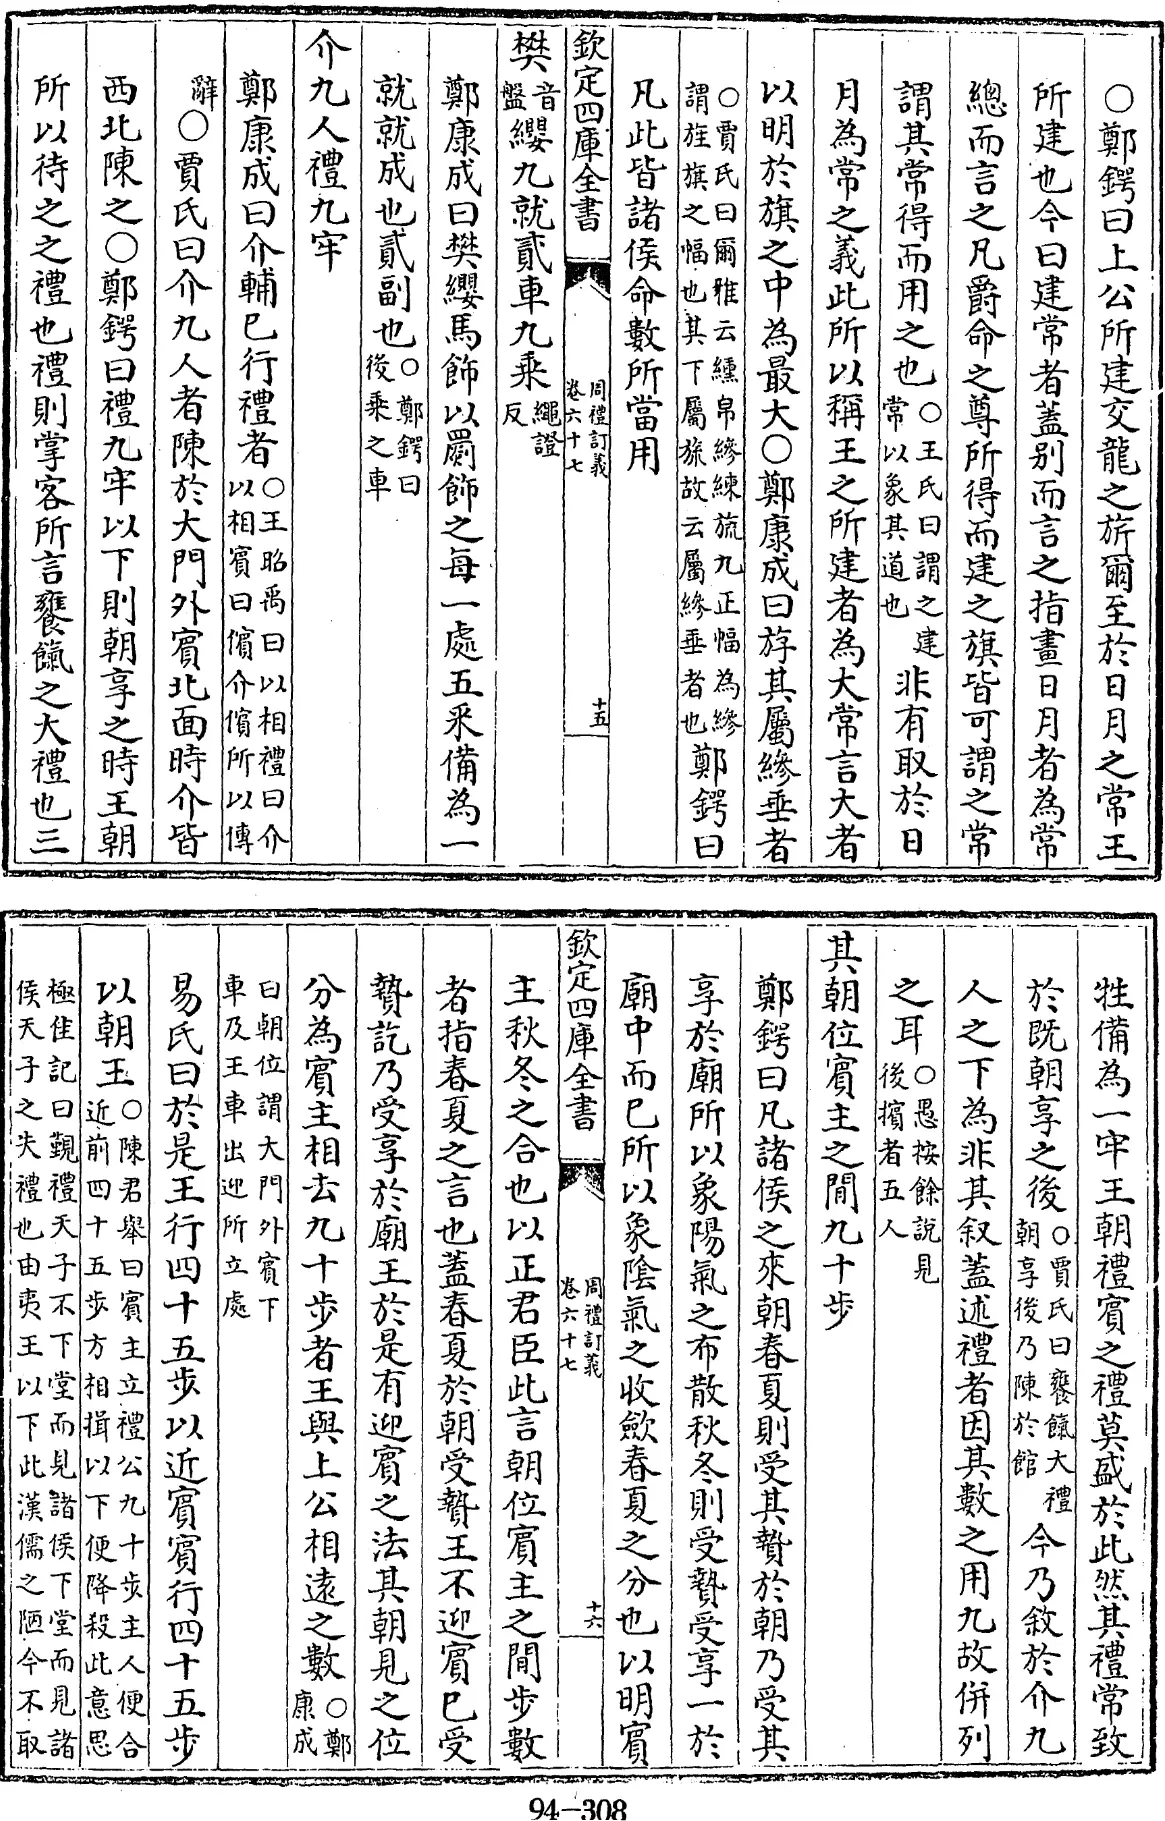 ○鄭鍔曰上公所建交龍之旂爾至於日月之常王
所建也今曰建常者蓋别而言之指畫日月者為常
總而言之凡爵命之尊所得而建之旗皆可謂之常
謂其常得而用之也○王氏曰謂之建常以象其道也非有取於日
月為常之義此所以稱王之所建者為大常言大者
以明於旗之中為最大○鄭康成曰斿其屬縿垂者
○賈氏曰爾雅云纁帛縿練旒九正幅為縿謂旌旗之幅也其下屬旒故云屬縿垂者也鄭鍔曰
凡此皆諸侯命數所當用
欽定四庫全書 周禮訂義卷六十七 十五
樊音盤纓九就貳車九乘繩證反
鄭康成曰樊纓馬飾以罽飾之每一處五采備為一
就就成也貳副也○鄭鍔曰後乘之車
介九人禮九牢
鄭康成曰介輔已行禮者○王昭禹曰以相禮曰介以相賓曰儐介儐所以傳
辭○賈氏曰介九人者陳於大門外賓北面時介皆
西北陳之○鄭鍔曰禮九牢以下則朝享之時王朝
所以待之之禮也禮則掌客所言饔餼之大禮也三
牲備為一牢王朝禮賓之禮莫盛於此然其禮常致
於既朝享之後○賈氏曰饔餼大禮朝享後乃陳於館今乃敘於介九
人之下為非其叙蓋述禮者因其數之用九故併列
之耳○愚按餘說見後擯者五人
其朝位賓主之間九十步
鄭鍔曰凡諸侯之來朝春夏則受其贄於朝乃受其
享於廟所以象陽氣之布散秋冬則受贄受享一於
廟中而已所以象陰氣之收歛春夏之分也以明賓
欽定四庫全書 周禮訂義卷六十七 十六
主秋冬之合也以正君臣此言朝位賓主之間步數
者指春夏之言也蓋春夏於朝受贄王不迎賓已受
贄訖乃受享於廟王於是有迎賓之法其朝見之位
分為賓主相去九十步者王與上公相遠之數○鄭康成
曰朝位謂大門外賓下車及王車出迎所立處
易氏曰於是王行四十五步以近賓賓行四十五步
以朝王○陳君舉曰賓主立禮公九十步主人便合近前四十五步方相揖以下便降殺此意思
極佳記曰覲禮天子不下堂而見諸侯下堂而見諸侯天子之失禮也由夷王以下此漢儒之陋今不取
94-308